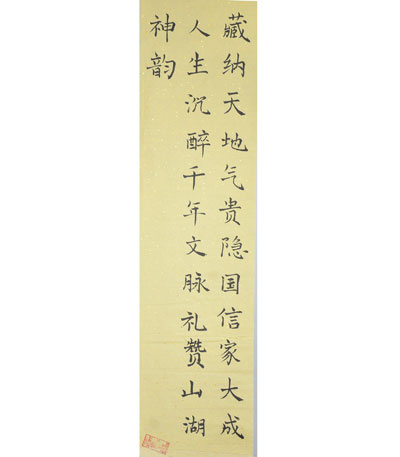 藏纳天地气贵隐国信家大成
人生沉醉千年文脉礼赞山湖
神韵